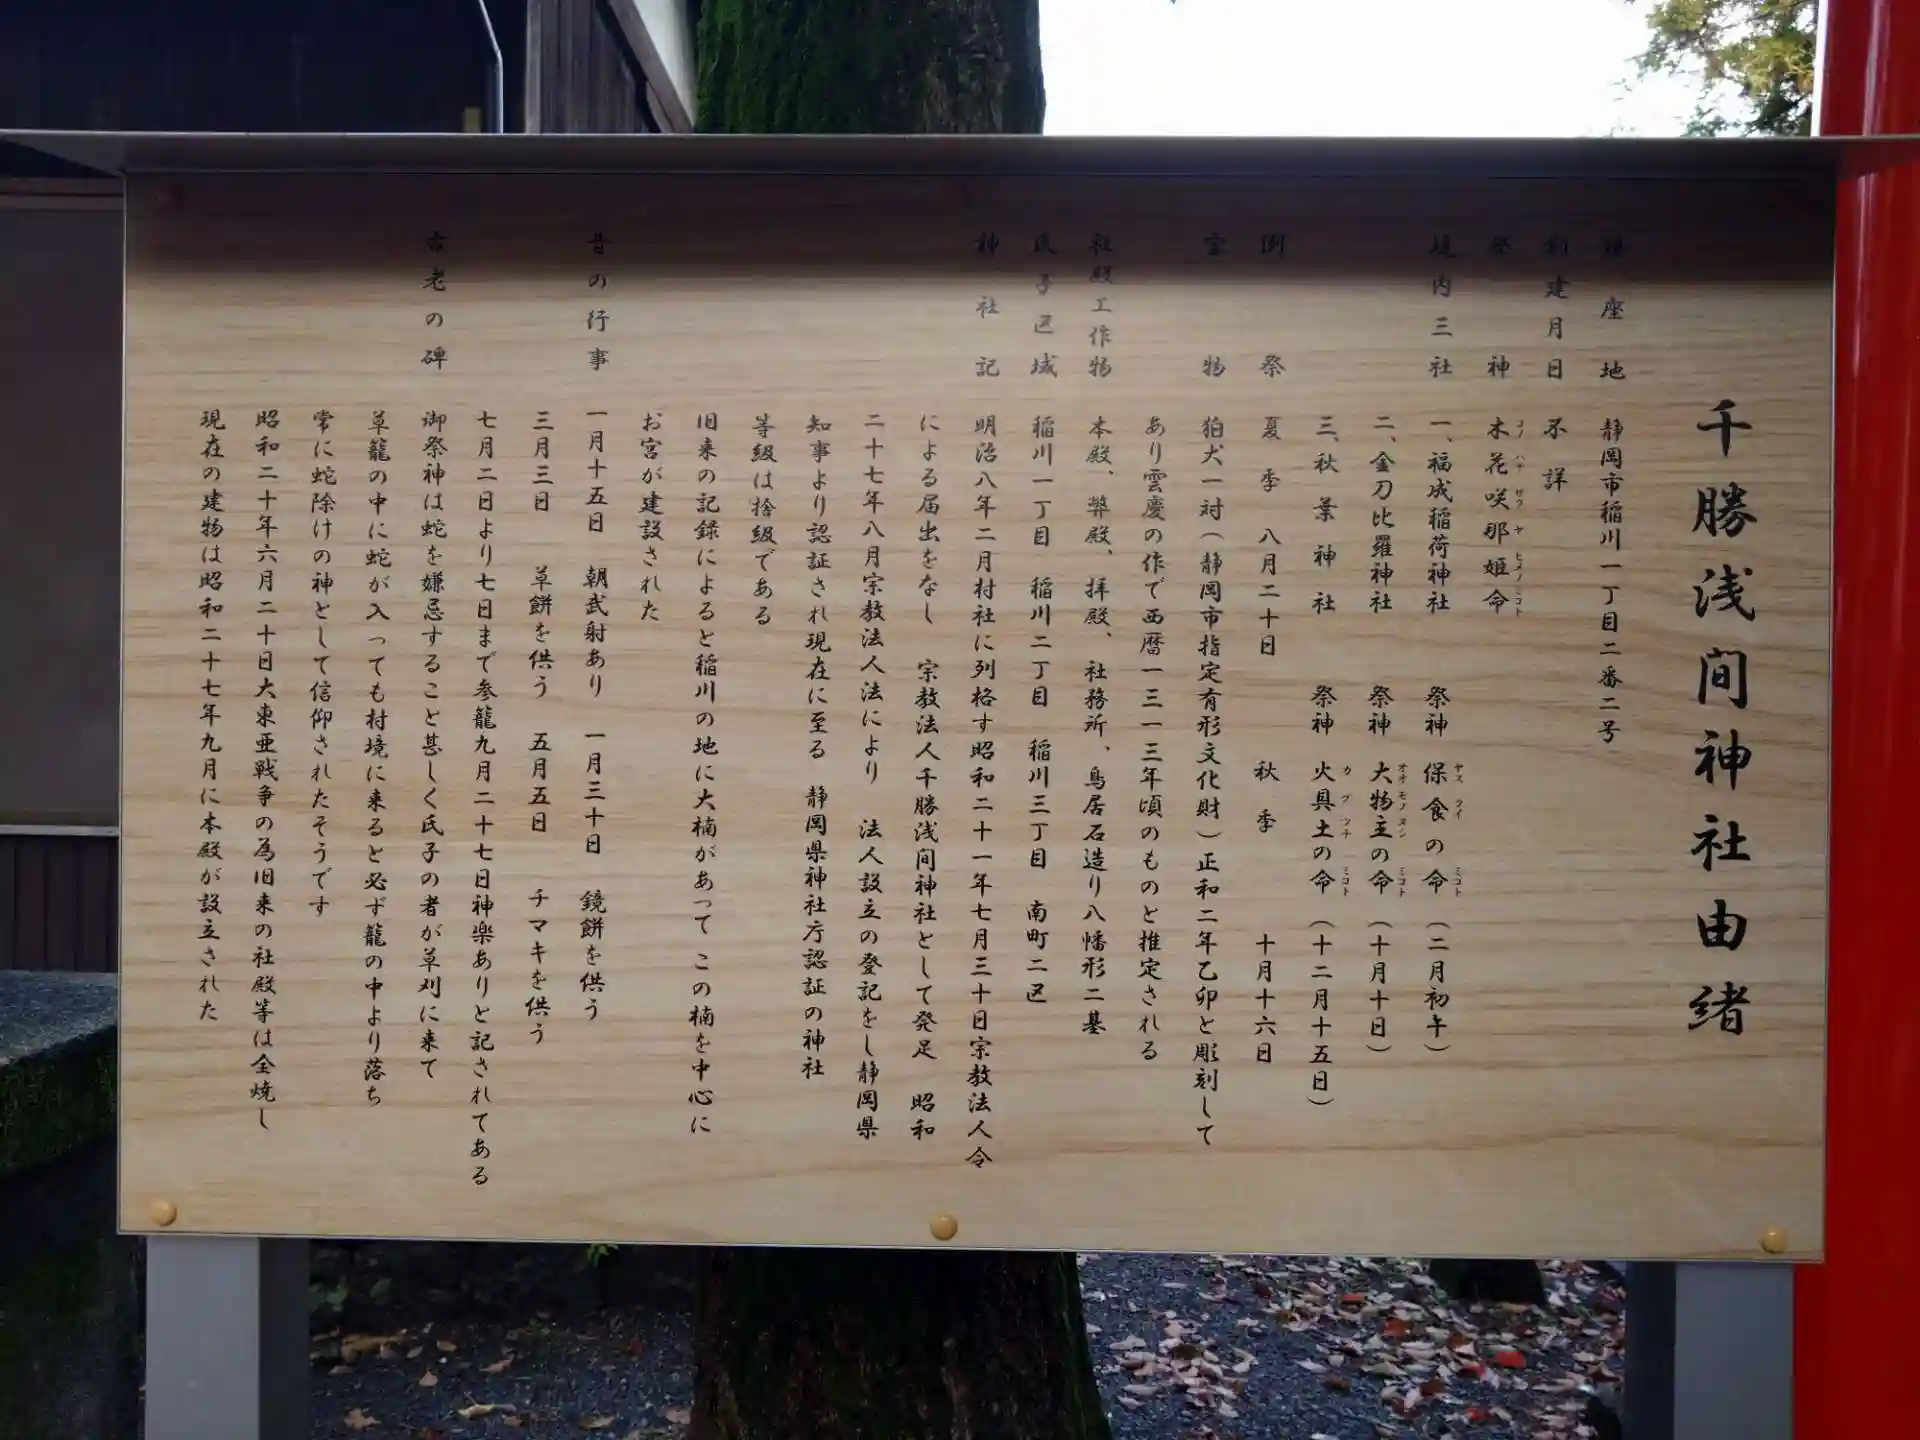 千勝浅間神社由緒
鎮座地 静岡市稲川一丁目二番二号
創建月日 不詳
祭神 木花咲那姫命
境内三社 一、福成稲荷神社 祭神 保食の命（二月初午）
二、金刀比羅神社 祭神 大物主の命（十月十日）
三、秋葉神社 祭神 火具土の命（十二月十五日）
例祭 夏季 八月二十日 秋季 十月十六日
宝物 狛犬一対（静岡市指定有形文化財）正和二年乙卯と彫刻して
あり雲慶の作で西暦一三一三年頃のものと推定される
社殿工作物 本殿、弊殿、拝殿、社務所、鳥居石造り八幡形二基
氏子区域 稲川一丁目 稲川二丁目 稲川三丁目 南町二区
神社記 明治八年二月村社に列格す昭和二十一年七月三十日宗教法人令
による届出をなし 宗教法人千勝浅间神社として発足 昭和
二十七年八月宗教法人法により 法人設立の登記をし静岡県
知事より認証され現在に至る 静岡県神社庁認証の神社
等級は捨級である
旧来の記録によると稲川の地に大楠があって この楠を中心に
お宮が建設された
昔の行事 一月十五日 朝武射あり 一月三十日 鏡餅を供う
三月三日 草餅を供う 五月五日 チマキを供う
七月二日より七日まで参籠九月二十七日神楽ありと記されてある
古老の碑 御祭神は蛇を嫌忌すること甚しく氏子の者が草刈に来て
草籠の中に蛇が入っても村境に来ると必ず籠の中より落ち
常に蛇除けの神として信仰されたそうです
昭和二十年六月二十日大東亜戦争の為旧来の社殿等は全焼し
現在の建物は昭和二十七年九月に本殿が設立された